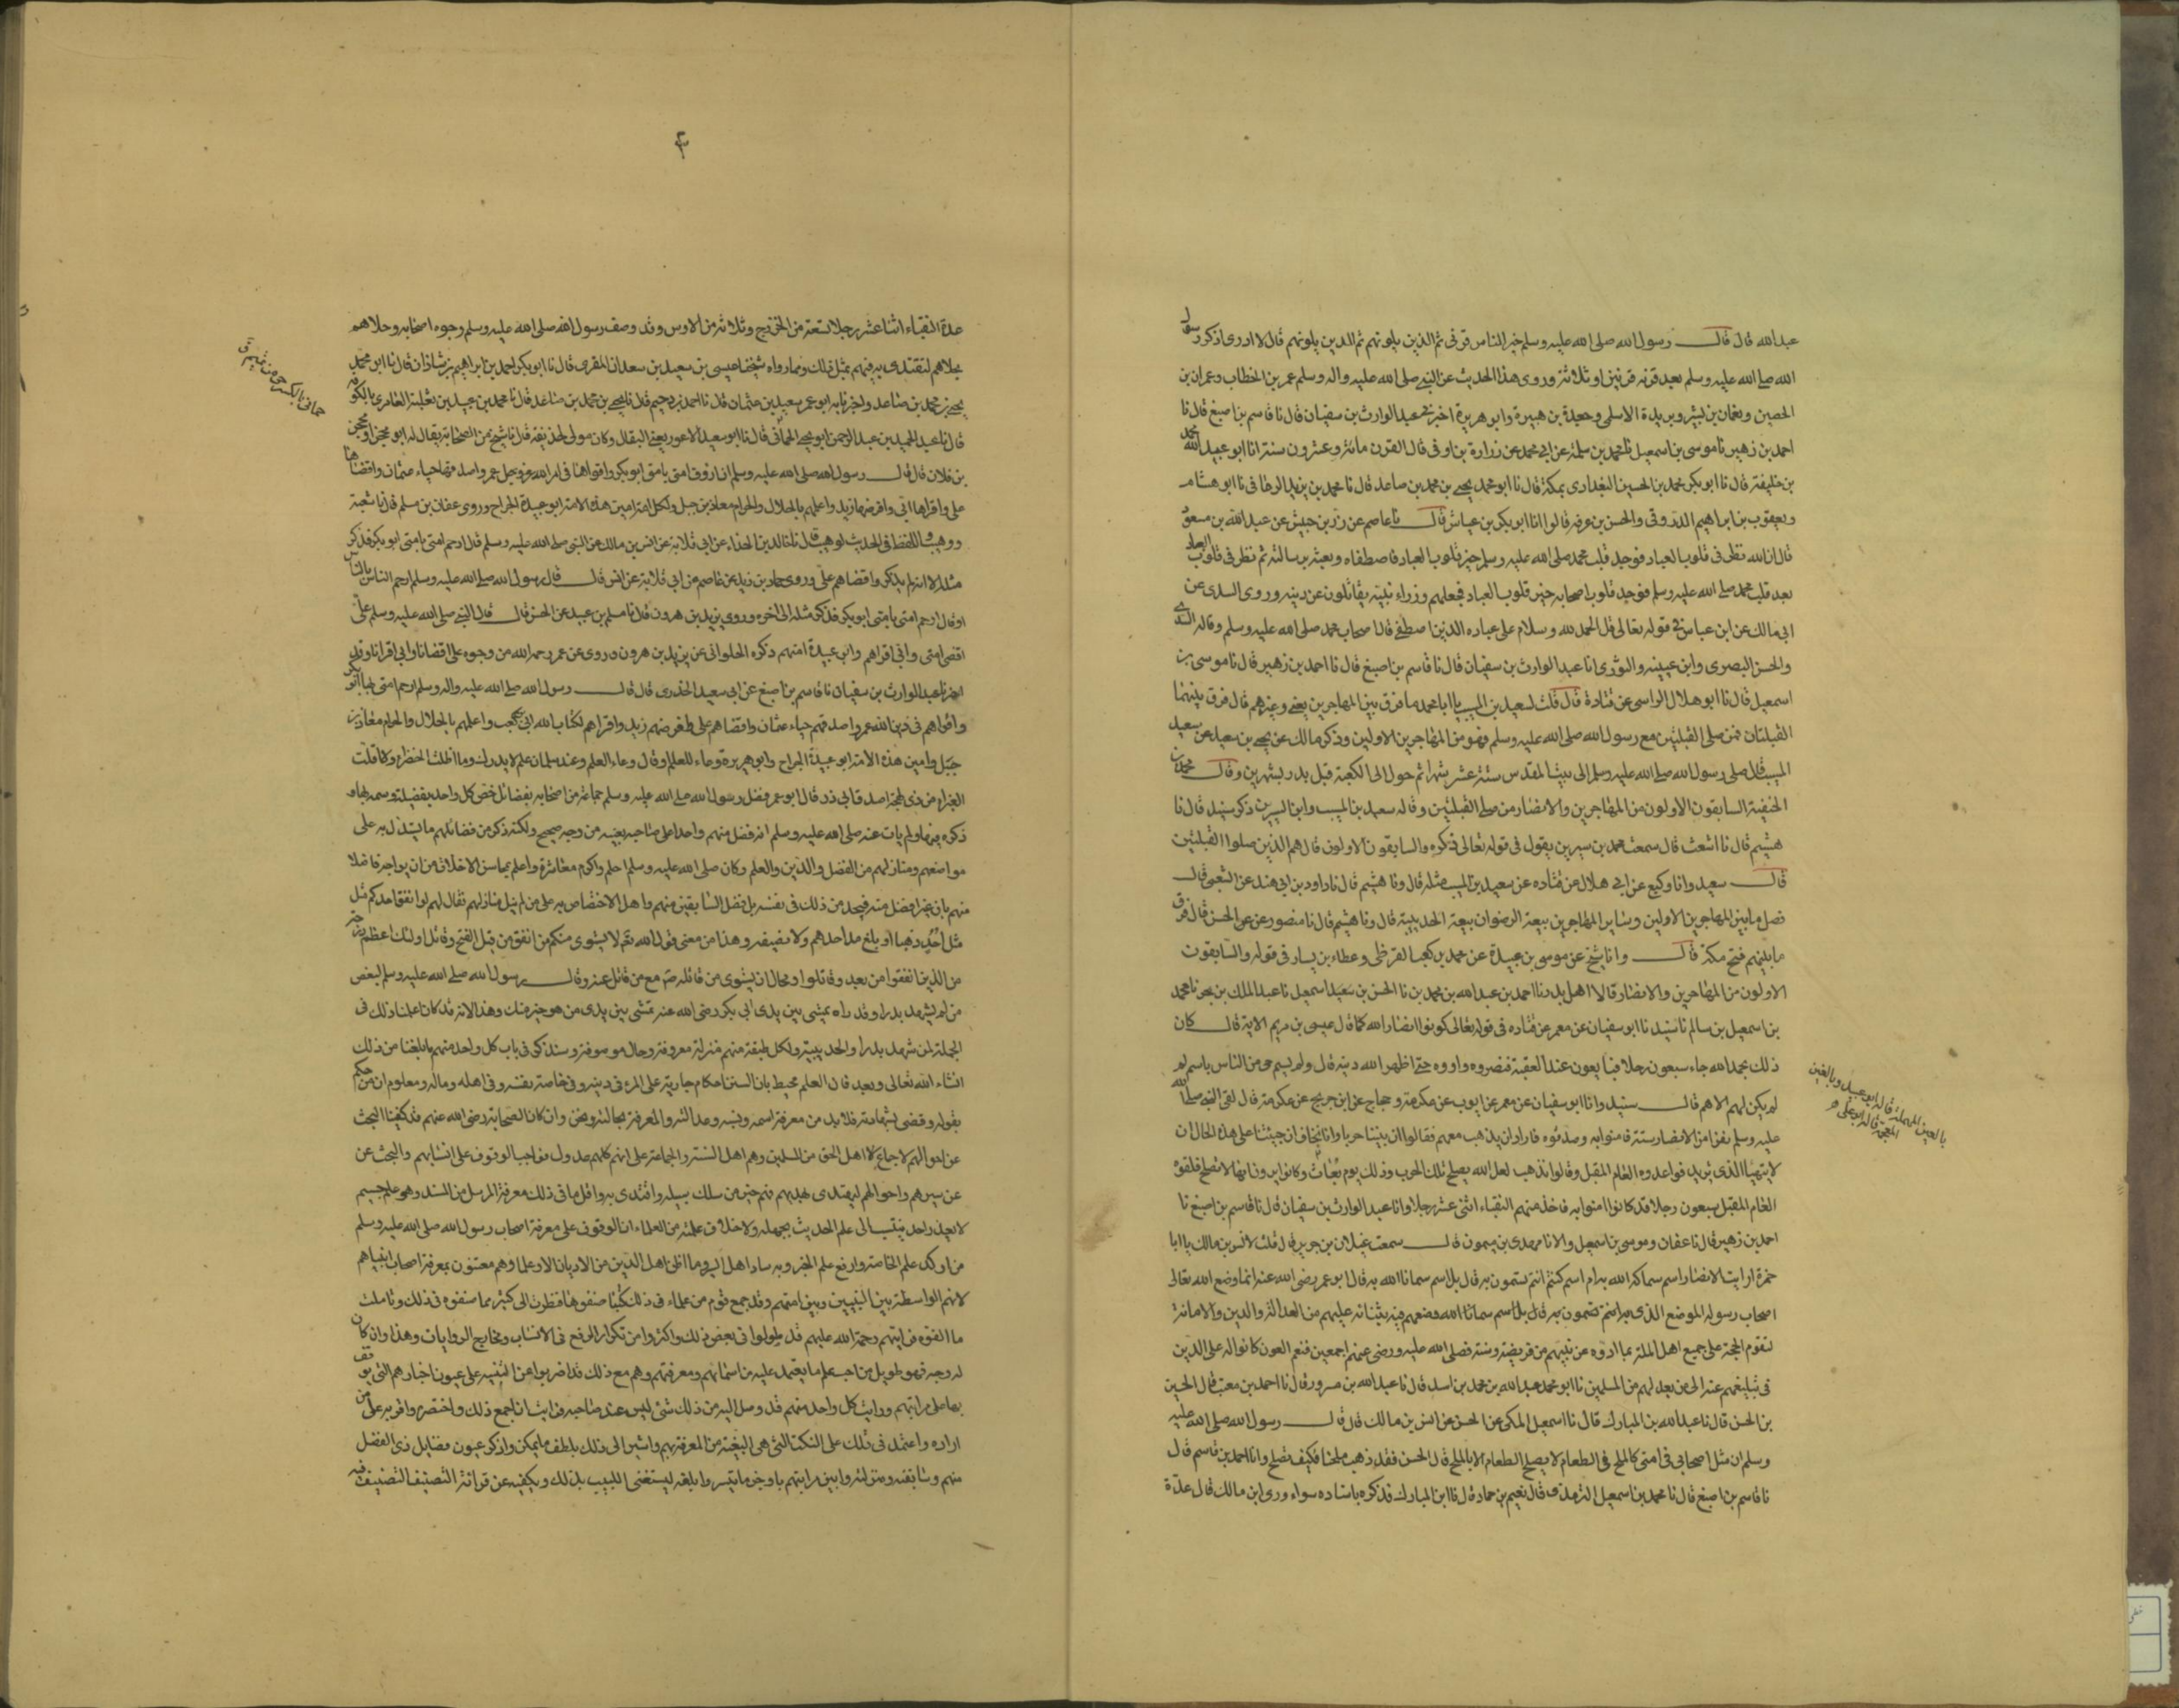 عبدالله قال قال رسول الله صلى الله عليه وسلم خير الناس قرنى ثم الذين يلونهم ثم الذين يلونهم قال لا ادرى اذكر رسول
الله صلى الله عليه وسلم بعد قرنه قرنين او ثلاثة وروى هذا الحديث عن النبي صلى الله عليه واله وسلم عمر بن الخطاب وعمران بن
الحصين ونعمان بن بشير وبريدة الاسلمى وجعدة بن هبيرة وابو هريرة اخبرنى عبد الوارث بن سفيان قال نا قاسم بن اصبغ قال نا
احمد بن زهير نا موسى بن اسمعيل نا حماد بن سلمة عن ابى محمد عن زرارة بن اوفى قال القرن مائة وعشرون سنة انا ابو عبيد الله محمد
بن خليفة قال نا ابو بكر محمد بن الحسين البغدادى بمكة قال نا ابو محمد يحيى بن محمد بن صاعد قال نا محمد بن يزيد الرفاعى نا ابو هشام
ويعقوب بن ابراهيم الدورقى والحسن بن عرفه قالوا انا ابو بكر بن عياش قال نا عاصم عن زر بن حبيش عن عبد الله بن مسعود
قال ان الله نظر فى قلوب العباد فوجد قلب محمد صلى الله عليه وسلم خير قلوب العباد فاصطفاه وبعثه برسالته ثم نظر فى قلوب العباد
بعد قلب محمد صلى الله عليه وسلم فوجد قلوب اصحابه خير قلوب العباد فجعلهم وزراء نبيه يقاتلون عن دينه وروى السدى عن
ابى مالك عن ابن عباس فى قوله تعالى قل الحمد لله وسلام على عباده الذين اصطفى قال اصحاب محمد صلى الله عليه وسلم وقاله السدى
والحسن البصرى وابن عيينه والثورى انا عبد الوارث بن سفيان قال نا قاسم بن اصبغ قال نا احمد بن زهير قال نا موسى بن
اسمعيل قال نا ابو هلال الراسى عن قتادة قال قلت لسعيد بن المسيب يا ابا محمد ما فرق بين المهاجرين يعنى وغيرهم قال فرق بينهما
القبلتان فمن صلى القبلتين مع رسول الله صلى الله عليه وسلم فهو من المهاجرين الاولين وذكر مالك عن يحيى بن سعيد عن سعيد
المسيب قال صلى رسول الله صلى الله عليه وسلم الى بيت المقدس ستة عشر شهرا ثم حول الى الكعبة قبل بدر بشهرين وقال محمد بن
الحنفية السابقون الاولون من المهاجرين والانصار من صلى القبلتين وقاله سعيد بن المسيب وابن السيرين ذكر سنيد قال نا
هشيم قال نا اشعث قال سمعت محمد بن سيرين يقول فى قوله تعالى ذكره والسابقون الاولون قال هم الذين صلوا القبلتين
قال سعيد وانا وكيع عن ابى هلال عن قتاده عن سعيد بن المسيب مثله قال ونا هشيم قال نا داود بن ابى هند عن الشعبى قال
فصل ما بين المهاجرين الاولين وساير المهاجرين بيعة الرضوان بيعة الحديبية قال ونا هشيم قال نا منصور عن الحسن قال فرق
ما بينهم فتح مكة قال وانا شيخ عن موسى بن عبيدة عن محمد بن كعب القرظى وعطاء بن يسار فى قوله والسابقون
الاولون من المهاجرين والانصار قالا اهل بدر نا احمد بن عبد الله بن محمد بن نا الحسن بن سعيد اسمعيل نا عبد الملك بن بحر نا محمد
بن اسمعيل بن سالم نا سنيد نا ابو سفيان عن معمر عن قتاده فى قوله تعالى كونوا انصار الله كما قال عيسى بن مريم الاية قال كان
ذلك بحمد الله جاء سبعون رجلا فبايعون عند العقبة فنصروه واووه حتى اظهر الله دينه قال ولم يسم حى من الناس باسم لم
لم يكن لهم الا هم قال سنيد وانا ابو سفيان عن معمر عن ايوب عن عكرمة وحجاج عن ابن جريج عن عكرمة قال لقى النبى صلى الله
عليه وسلم نفرا من الانصار ستة فامنوا به وصدقوه فاراد ان يذهب معهم فقالوا ان بيننا حربا وانا نخاف ان جئتنا على هذه الحال ان
لا يتهيا الذى تريد فواعدوه العام المقبل وقالوا نذهب لعل الله يصلح تلك الحرب وذلك يوم بُعَاث وكانوا يرون انها لا تصلح فلقوه
العام المقبل سبعون رجلا قد كانوا امنوا به فاخذ منهم النقباء اثنى عشر رجلا وانا عبد الوارث بن سفيان قال نا قاسم بن اصبغ نا
احمد بن زهير قال نا عفان وموسى بن اسمعيل والا نا مهدى بن ميمون قال سمعت غيلان بن جرير قال قلت لانس بن مالك يا ابا
حمزة ارايت الانصار اسم سماكم الله به ام اسم كنتم انتم تسمون به قال بل اسم سمانا الله به قال ابو عمر رضى الله عنه انما وضع الله تعالى
اصحاب رسوله الموضع الذى بثنائه عليهم من العدالة والدين والامانة
لتقوم الحجة على جميع اهل الملة بما ادوه عن نبيهم من فريضة وسنة فصلى الله عليه ورضى عنهم اجمعين فنعم العون كانوا له على الدين
فى تبليغهم عنه الى من بعدهم من المسلمين نا ابو محمد عبد الله بن محمد بن اسد قال نا عبد الله بن مسرور قال نا احمد بن معتب قال الحسين
بن الحسن قال نا عبد الله بن المبارك قال نا اسمعيل المكى عن الحسن عن انس بن مالك قال قال رسول الله صلى الله عليه
وسلم ان مثل اصحابى فى امتى كالملح فى الطعام لا يصلح الطعام الا بالملح قال الحسن فقد ذهب ملحنا فكيف نصلح وانا احمد بن قاسم قال
نا قاسم بن اصبغ قال نا محمد بن اسمعيل الترمذى قال نعيم بن حماد قال نا ابن المبارك فذكره باسناده سواء وروى ابن مالك قال عدة
بالعين المهملة قاله ابو عبيد وبالغين
المعجمة قاله ابو على
۴
عدة النقباء اثنا عشر رجلا تسعة من الخزرج وثلاثة من الاوس وقد وصف رسول الله صلى الله عليه وسلم وجوه اصحابه وحلاهم
بحلاهم لتقتدى به فيهم بمثل ذلك ومما رواه شيخنا عيسى بن سعيد بن سعدان المقرى قال نا ابو بكر احمد بن ابراهيم بن شاذان قال نا ابو محمد
يحيى بن محمد بن صاعد واخبرنا به ابو عمر سعيد بن عثمان قال نا احمد بن دحيم قال نا يحيى بن محمد بن صاعد قال نا محمد بن عبيد بن ثعلبة العامرى بالكوفه
قال نا عبد الحميد بن عبد الرحمن ابو يحيى الحمانى قال نا ابو سعيد الاعور يعنى البقال وكان مولى لحذيفة قال نا شيخ من الصحابة يقال له ابو محجن او محجن
بن فلان قال قال رسول الله صلى الله عليه وسلم ان ارؤف امتى بامتى ابو بكر واقواها فى امر الله عز وجل عمر واصدقها حياء عثمان واقضاها
على واقراها ابى وافرضها زيد واعلمهم بالحلال والحرام معاذ بن جبل ولكل امة امين هذه الامة ابو عبيدة الجراح وروى عفان بن مسلم قال نا شعبة
ووهيب واللفظ فى الحديث لوهيب قال نا خالد الحذاء عن ابى قلابة عن انس بن مالك عن النبى صلى الله عليه وسلم قال ارحم امتى بامتى ابو بكر فذكر
مثله الا انه لم يذكر واقضاهم على وروى حماد بن زيد عن عاصم عن ابى قلابة عن انس قال قال رسول الله صلى الله عليه وسلم ارحم الناس بالناس
او قال ارحم امتى بامتى ابو بكر فذكر مثله الى اخره وروى يزيد بن هرون قال نا مسلم بن عبيد عن الحسن قال قال النبى صلى الله عليه وسلم علىّ
اقضى امتى وابى اقراهم وابو عبيدة امنهم ذكره الحلوانى عن يزيد بن هرون وروى عن عمر رحمه الله من وجوه على اقضانا وابى اقرانا وقد
اخبرنا عبد الوارث بن سفيان نا قاسم بن اصبغ عن ابى سعيد الخدرى قال قال رسول الله صلى الله عليه واله وسلم ارحم امتى بها ابو بكر
واقواهم فى دين الله عمر واصدقهم حياء عثمان واقضاهم على وافرضهم زيد واقراهم لكتاب الله ابى بن كعب واعلمهم بالحلال والحرام معاذ بن
جبل وامين هذه الامة ابو عبيدة الجراح وابو هريرة وعاء للعلم او قال وعاء العلم وعند سلمان علم لا يدرك وما اظلت الخضراء ولا اقلت
الغبراء من ذى لهجة اصدق من ابى ذر قال ابو عمر فضل رسول الله صلى الله عليه وسلم جماعة من اصحابه بفضائل خص كل واحد بفضيلة وسمه بها و
ذكره فيها ولم يات عنه صلى الله عليه وسلم انه فضل منهم واحدا على صاحبه بعينه من وجه صحيح ولكنه ذكر من فضائلهم ما يستدل به على
مواضعهم ومنازلهم من الفضل والدين والعلم وكان صلى الله عليه وسلم احلم واكرم معاشرة واعلم بمحاسن الاخلاق من ان يواجه فاضلا
منهم بان غيره افضل منه فيجد من ذلك فى نفسه بل فضل السابقين منهم واهل الاختصاص به على من لم ينل منازلهم فقال لهم لو انفق احدكم مثل
مثل اُحُدٍ ذهبا ما بلغ مد احدهم ولا نصيفه وهذا من معنى قول الله تعالى لا يستوى منكم من انفق من قبل الفتح وقاتل اولئك اعظم درجة
من الذين انفقوا من بعد وقاتلوا ومحال ان يستوى من قاتله مع من قاتل عنه وقال رسول الله صلى الله عليه وسلم لبعض
من لم يشهد بدرا وقد راه يمشى بين يدى ابى بكر رضى الله عنه تمشى بين يدى من هو خير منك وهذا لانه قد كان اعلمنا ذلك فى
الجملة لمن شهد بدرا والحديبية ولكل طبقة منهم منزلة معروفة وحال موصوفة وسنذكر فى باب كل واحد منهم ما بلغنا من ذلك
انشاء الله تعالى وبعد فان العلم محيط بان السنن احكام جارية على المرء فى دينه وفى خاصة نفسه وفى اهله وماله ومعلوم ان من حكم
بقوله وقضى بشهادته فلابد من معرفة اسمه ونسبه وعدالته والمعرفة بحالته ونحن وان كان الصحابة رضى الله عنهم قد كفينا البحث
عن احوالهم لاجماع اهل الحق من المسلمين وهم اهل السنة والجماعة على انهم كلهم عدول فواجب الوقوف على انسابهم والبحث عن
عن سيرهم واحوالهم ليهتدى بهديهم فهم خير من سلك سبيله واقتدى به واقل ما فى ذلك معرفة المرسل من السند وهو علم جسيم
لا يعذر احد ينتسب الى علم الحديث بجهله ولا خلاف علمته من العلماء ان الوقوف على معرفة اصحاب رسول الله صلى الله عليه وسلم
من اوكد علم الخاصة وارفع علم الخبر وبه ساد اهل السير وما اظن اهل الدين من الاديان الا وعلماؤهم معتنون بمعرفة اصحاب انبيائهم
لانهم الواسطة بين النبيين وبين امتهم وقد جمع قوم من علماء فى ذلك كتبا صنفوها فنظرت الى كثير مما صنفوه فى ذلك وتاملت
ما الفوه فرايتهم رحمة الله عليهم قد طولوا فى بعض ذلك واكثروا من تكرار الرفع فى الانساب ومخارج الروايات وهذا وان كان
له وجه فهو طويل من احب علم ما يعتمد عليه من اسمائهم ومعرفتهم وهم مع ذلك قد اضربوا عن التنبيه على عيون اخبارهم التى يوقف
بها على مراتبهم ورايت كل واحد منهم قد وصل اليه من ذلك شئ ليس عند صاحبه فرايت ان اجمع ذلك واختصره واقربه على من
اراده واعتمد فى ذلك على النكت التى هى البغية من المعرفة بهم واشير الى ذلك بالطف ما يمكن واذكر عيون فضايل ذى الفضل
منهم وسابقته ومنزلته وابين مراتبهم باوجز ما تيسر وابلغه ليستغنى اللبيب بذلك ويكفيه عن قرائة التصنيف